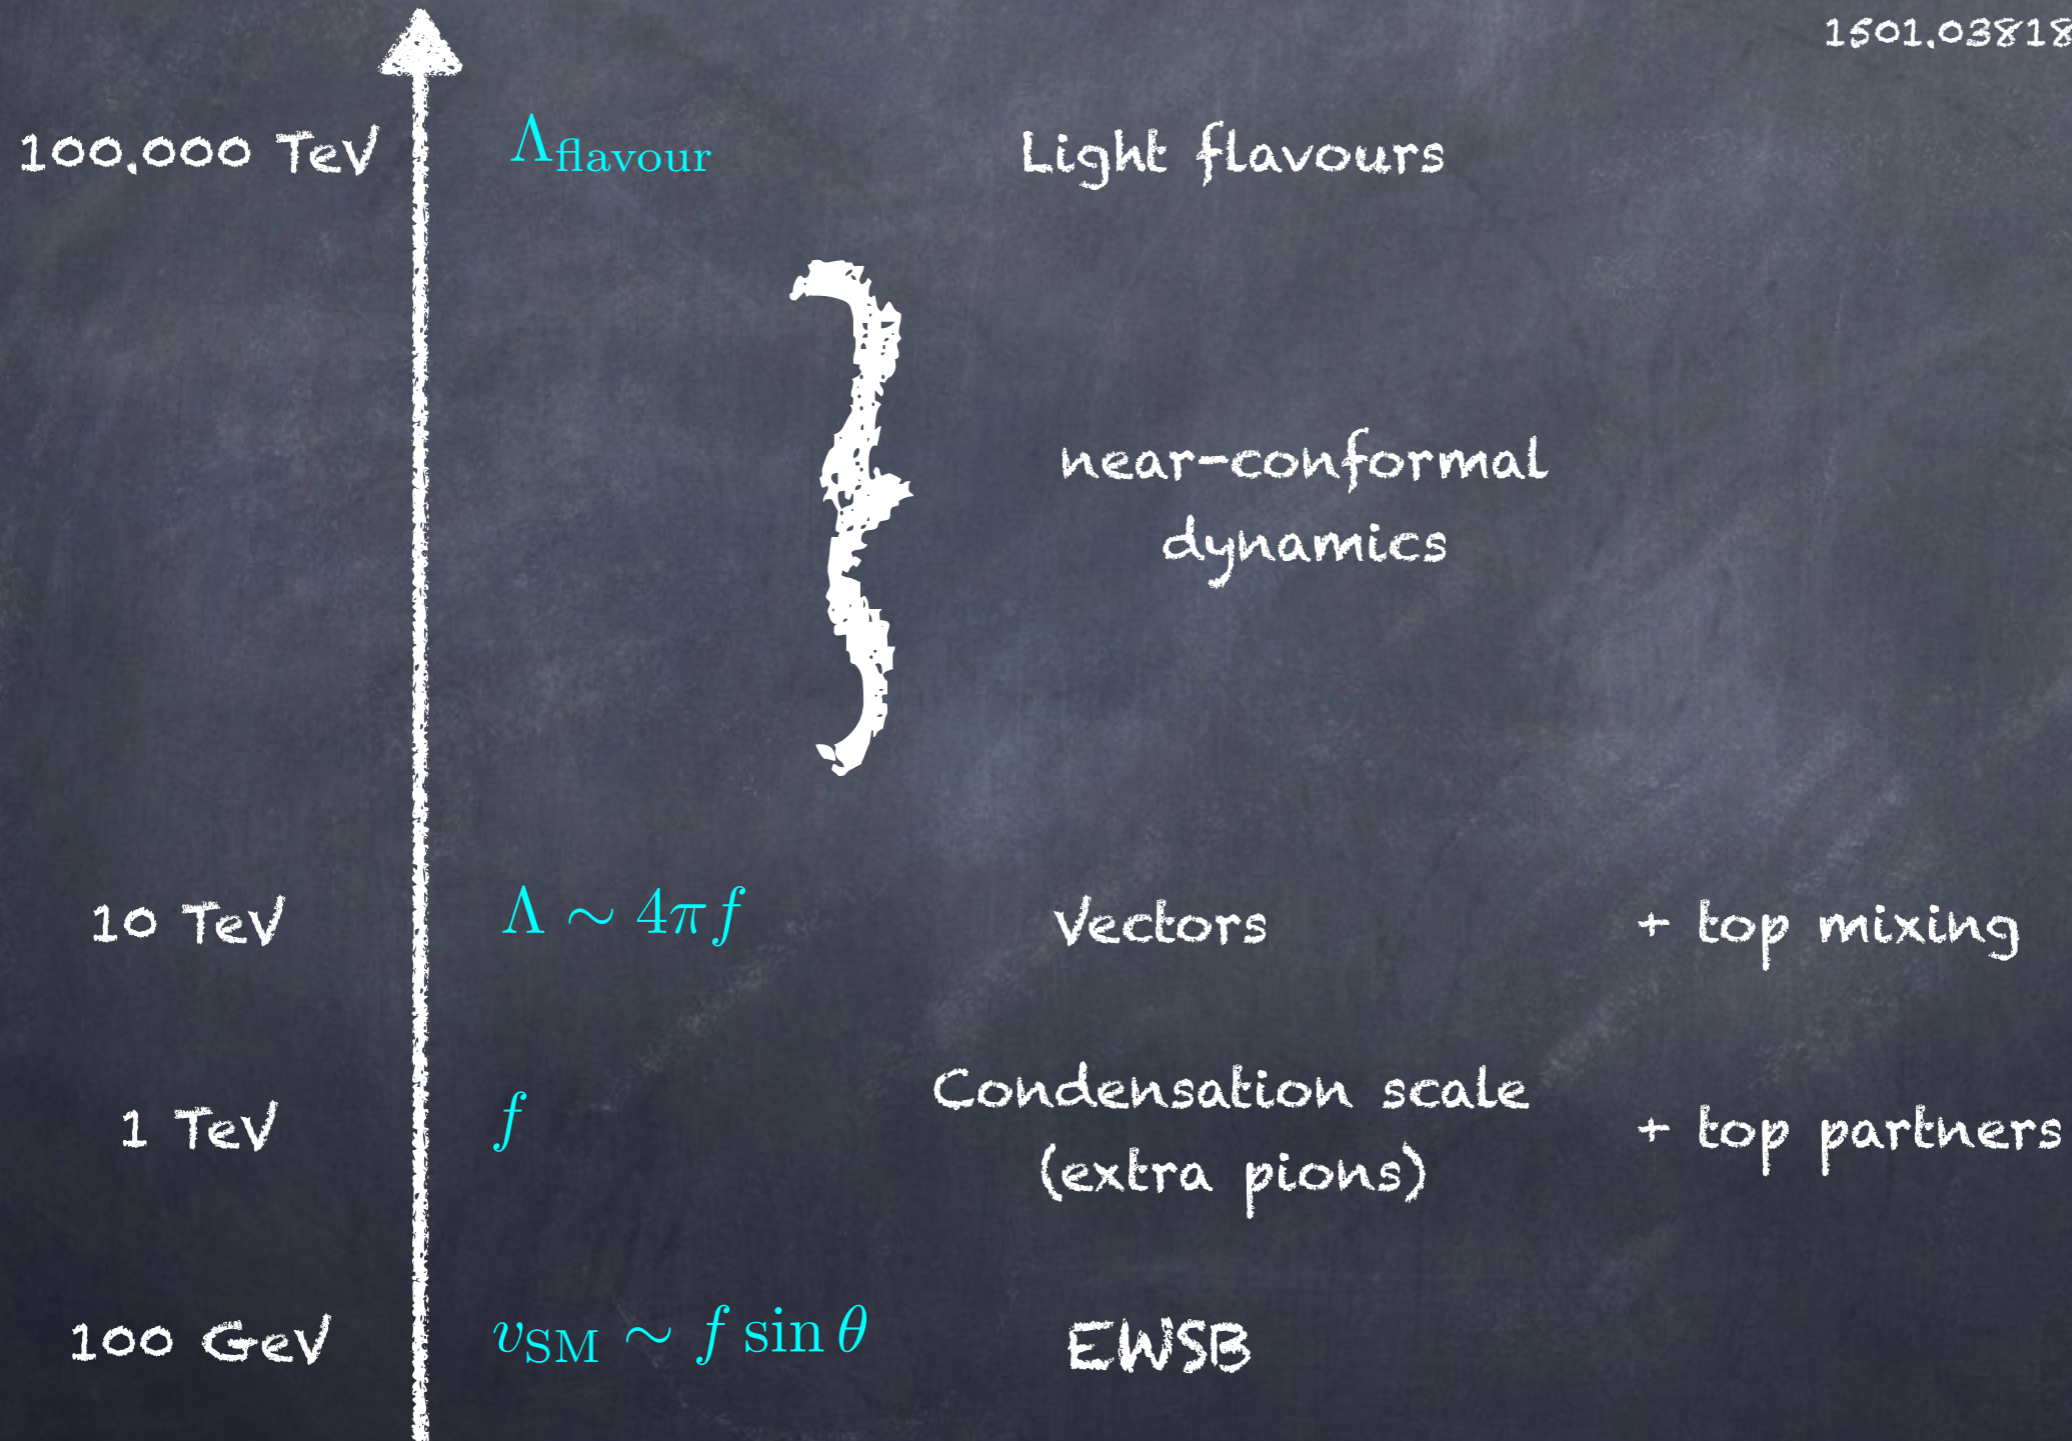 1501.03818
100.000 TeV Λflavour Light flavours
near-conformal
dynamics
10 TeV Λ ∼ 4πf Vectors + top mixing
Condensation scale
1 TeV f + top partners
(extra pions)
100 GeV vSM ∼ f sin θ EWSB